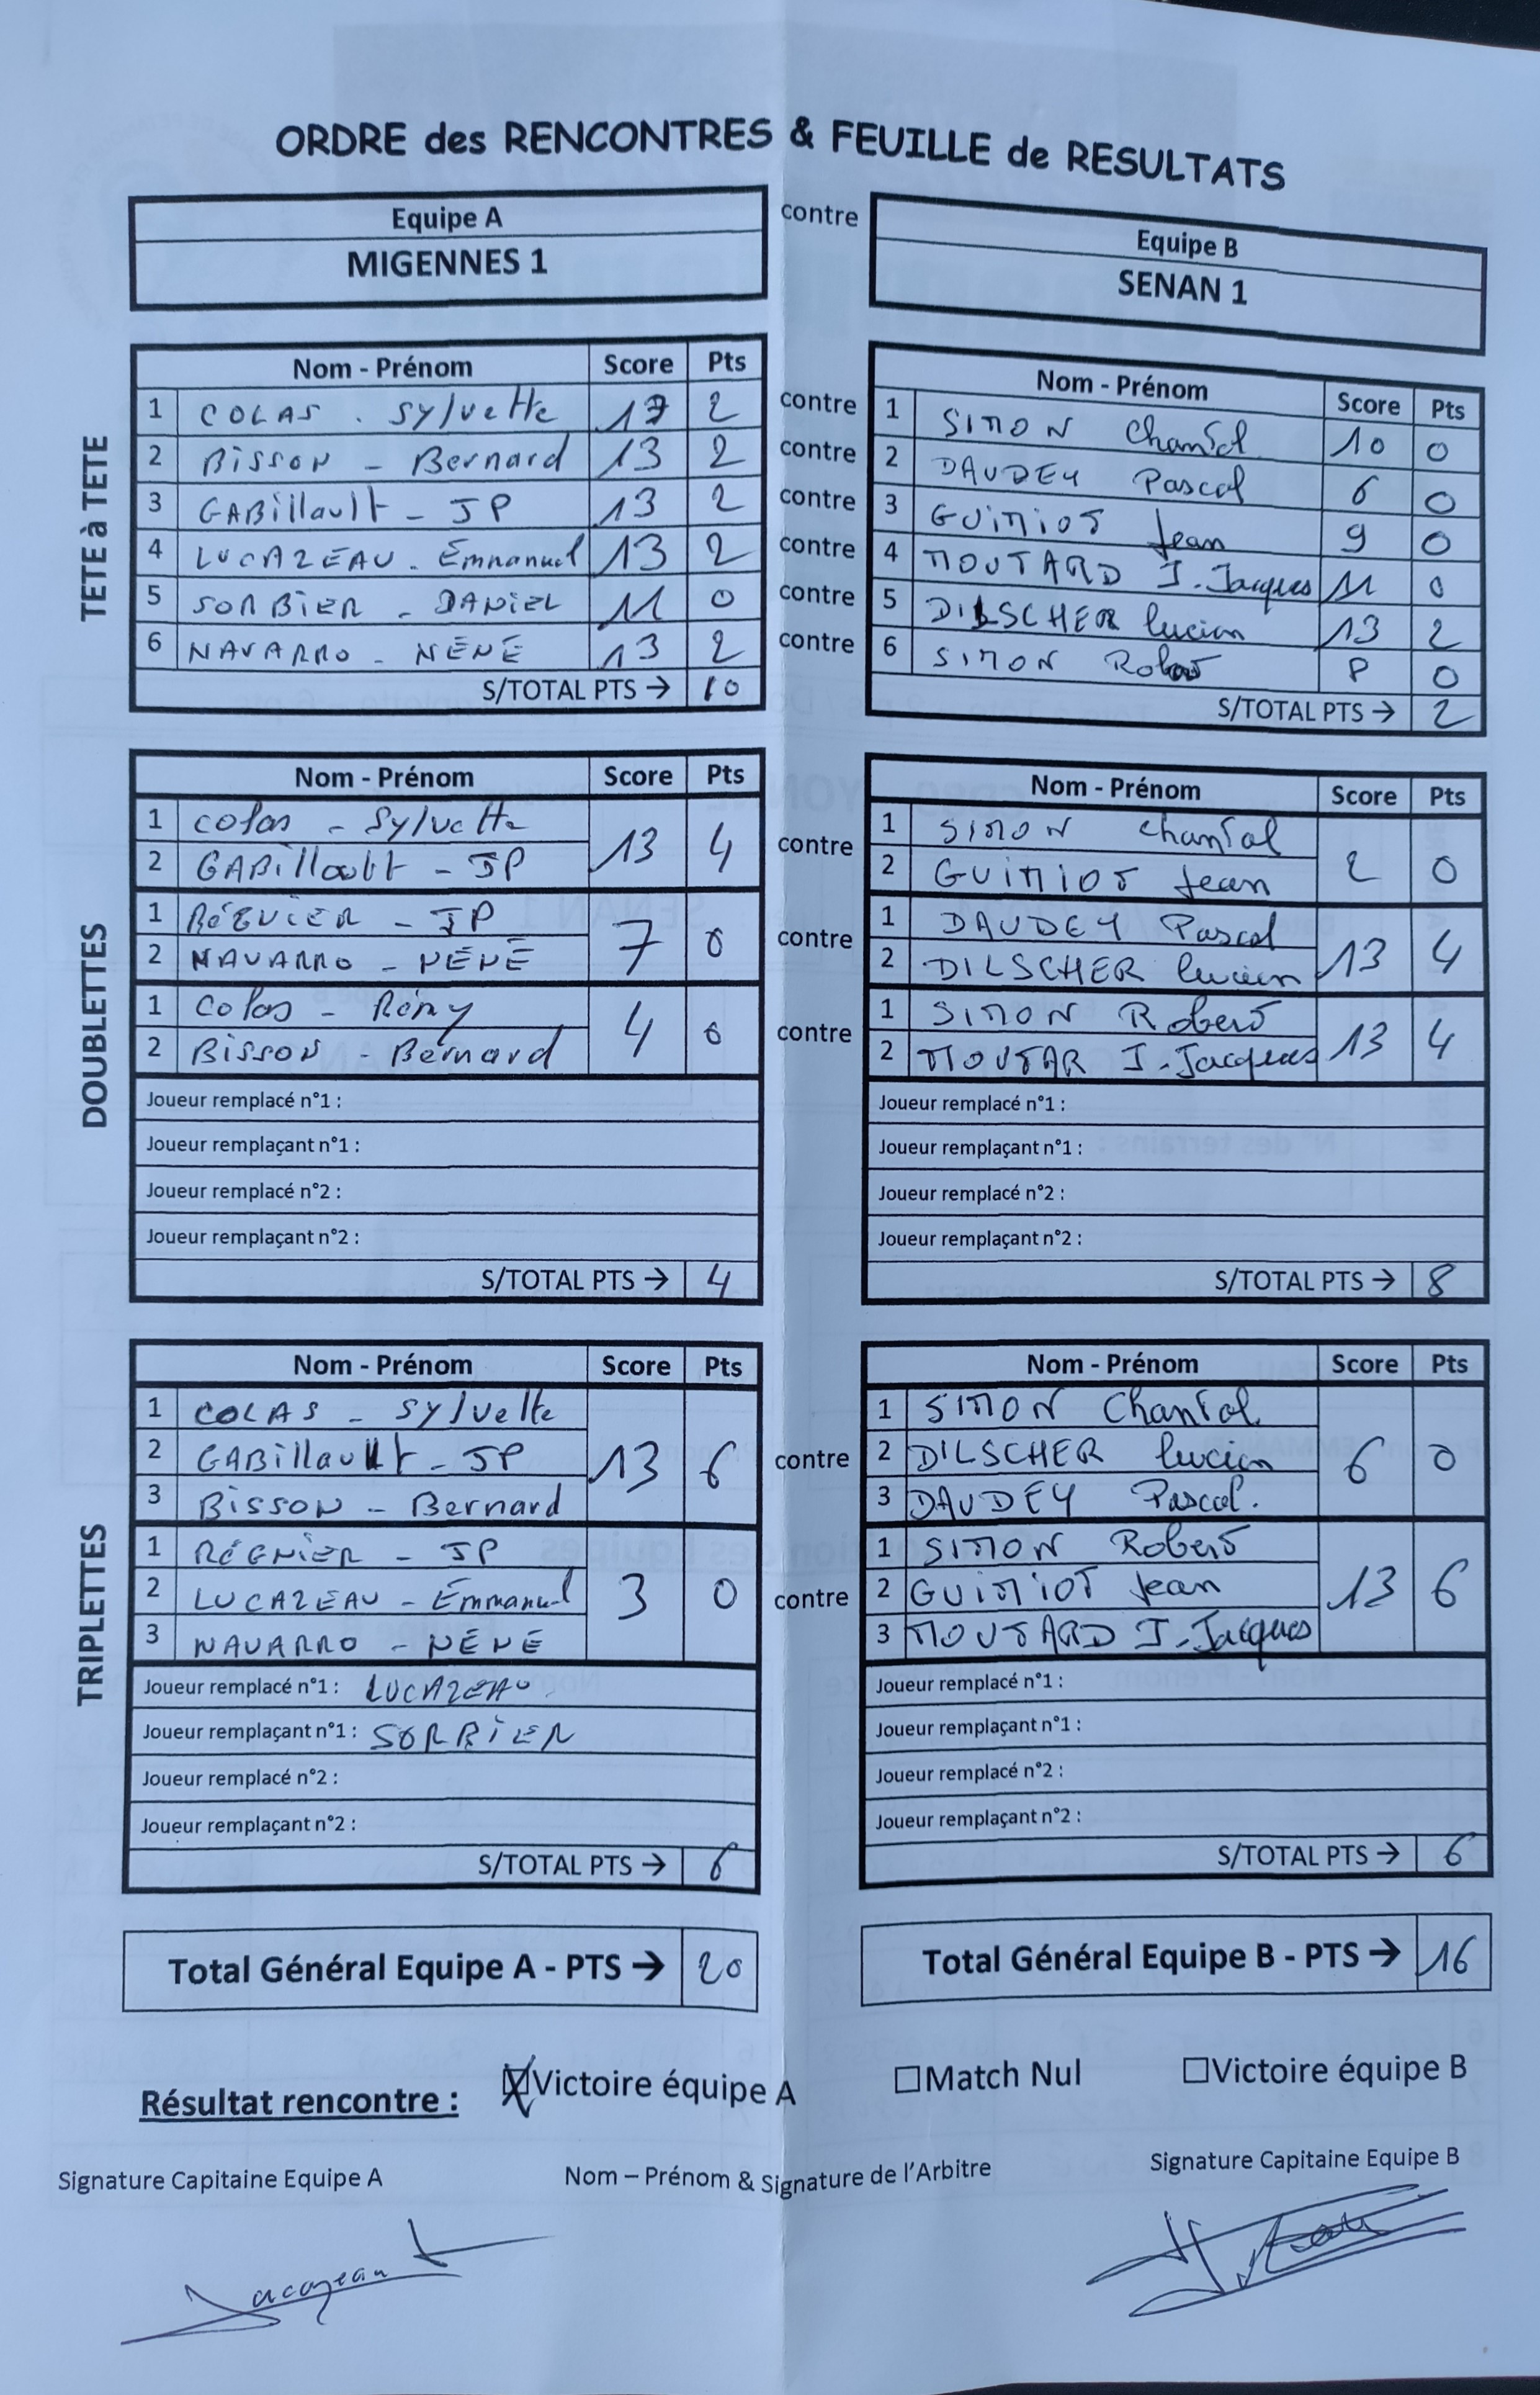 ORDRE des RENCONTRES & FEUILLE de RESULTATS
Equipe A contre Equipe B
MIGENNES 1 SENAN 1
TETE à TETE
Nom - Prénom Score Pts Nom - Prénom Score Pts
1 COLAS . Sylvette 13 2 contre 1 SIMON Chantal 10 0
2 BISSON - Bernard 13 2 contre 2 DAUDEY Pascal 6 0
3 GABillault - JP 13 2 contre 3 GUIMIOT Jean 9 0
4 LUCAZEAU - Emmanuel 13 2 contre 4 MOUTARD J-Jacques 11 0
5 SORBIER - DANIEL 11 0 contre 5 DILSCHER lucien 13 2
6 NAVARRO - NÉNÉ 13 2 contre 6 SIMON Robert 8 0
S/TOTAL PTS → 10 S/TOTAL PTS → 2
DOUBLETTES
Nom - Prénom Score Pts Nom - Prénom Score Pts
1 Colas - Sylvette 13 4 contre 1 SIMON Chantal 2 0
2 GABillault - JP 2 GUIMIOT Jean
1 RÉGNIER - JP 7 0 contre 1 DAUDEY Pascal 13 4
2 NAVARRO - NÉNÉ 2 DILSCHER lucien
1 Colas - Rémy 4 0 contre 1 SIMON Robert 13 4
2 BISSON - Bernard 2 MOUTAR J-Jacques
Joueur remplacé n°1 : Joueur remplacé n°1 :
Joueur remplaçant n°1 : Joueur remplaçant n°1 :
Joueur remplacé n°2 : Joueur remplacé n°2 :
Joueur remplaçant n°2 : Joueur remplaçant n°2 :
S/TOTAL PTS → 4 S/TOTAL PTS → 8
TRIPLETTES
Nom - Prénom Score Pts Nom - Prénom Score Pts
1 COLAS - Sylvette 1 SIMON Chantal
2 GABillault - JP 13 6 contre 2 DILSCHER lucien 6 0
3 BISSON - Bernard 3 DAUDEY Pascal.
1 RÉGNIER - JP 1 SIMON Robert
2 LUCAZEAU - Emmanuel 3 0 contre 2 GUIMIOT Jean 13 6
3 NAVARRO - NÉNÉ 3 MOUTARD J-Jacques
Joueur remplacé n°1 : LUCAZEAU Joueur remplacé n°1 :
Joueur remplaçant n°1 : SORBIER Joueur remplaçant n°1 :
Joueur remplacé n°2 : Joueur remplacé n°2 :
Joueur remplaçant n°2 : Joueur remplaçant n°2 :
S/TOTAL PTS → 6 S/TOTAL PTS → 6
Total Général Equipe A - PTS → 20 Total Général Equipe B - PTS → 16
Résultat rencontre : ☒Victoire équipe A ☐Match Nul ☐Victoire équipe B
Signature Capitaine Equipe A Nom – Prénom & Signature de l'Arbitre Signature Capitaine Equipe B